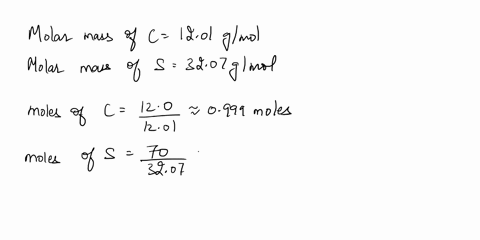 Molar mass of C = 12.01 g/mol
Molar mass of S = 32.07 g/mol
moles of C = 12.0/12.01 ≈ 0.999 moles
moles of S = 70/32.07